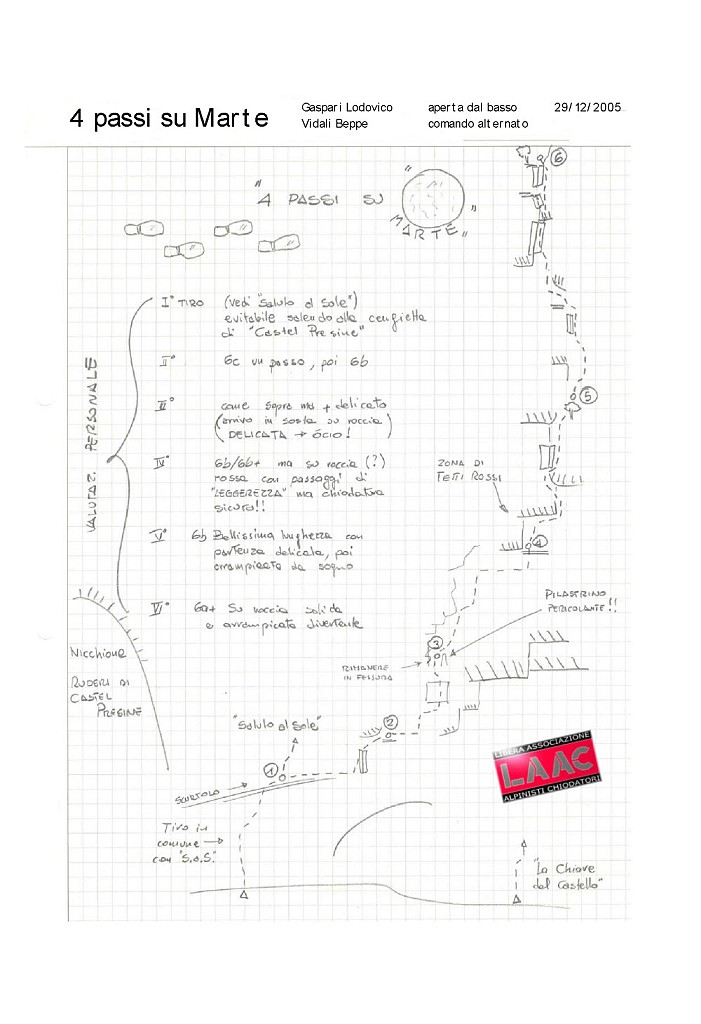 4 passi su Marte
Gaspari Lodovico
Vidali Beppe
aperta dal basso
comando alternato
29/12/2005
"4 PASSI SU "MARTE"
6
I° TIRO (vedi "Saluto al Sole")
evitabile salendo alla cengietta
di "Castel Presine"
II° 6c un passo, poi 6b
III° come sopra ma + delicato
(arrivo in sosta su roccia
DELICATA → ÓCIO!)
IV° 6b/6b+ ma su roccia (?)
rossa con passaggi di
"LEGGEREZZA" ma chiodatura
sicura!!
V° 6b Bellissima lunghezza con
partenza delicata, poi
arrampicata da sogno
VI° 6a+ Su roccia solida
e arrampicata divertente
VALUTAZ. PERSONALE
5
ZONA DI
TETTI ROSSI
4
PILASTRINO
PERICOLANTE!!
3
RIMANERE
IN FESSURA
Nicchione
RUDERI DI
CASTEL
PRESINE
2
"Saluto al Sole"
1
LIBERA ASSOCIAZIONE
LAAC
ALPINISTI CHIODATORI
Tiro in
comune →
con "S.a.S."
"La Chiave
del Castello"